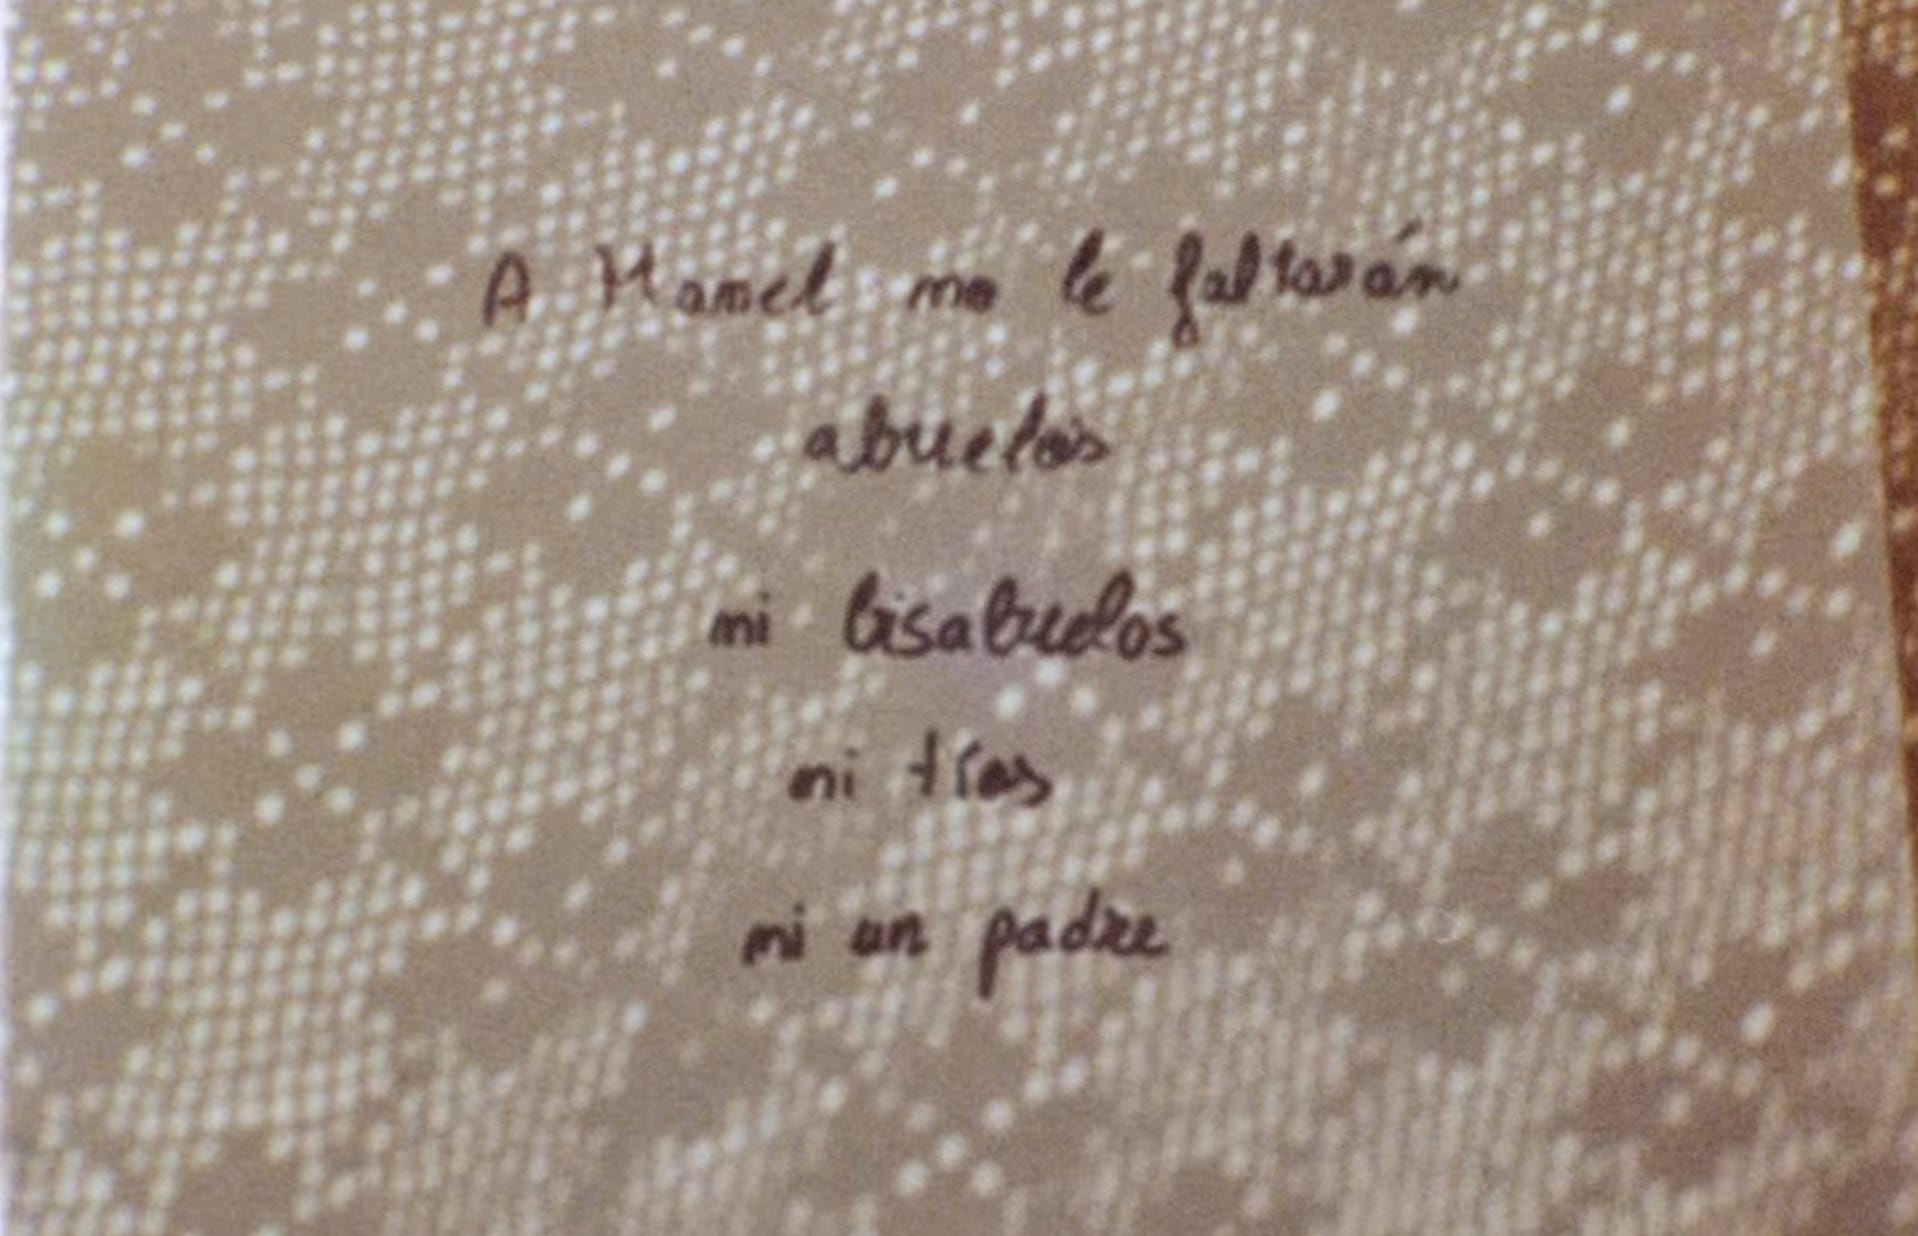 A Manel no le faltarán
abuelos
ni bisabuelos
ni tíos
ni un padre